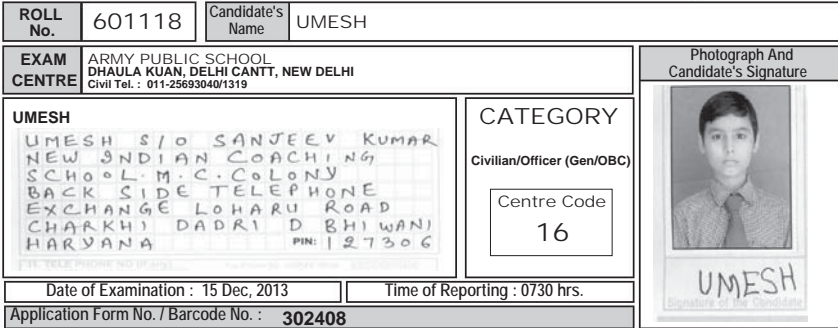 ROLL No. 601118 Candidate's Name UMESH
EXAM CENTRE ARMY PUBLIC SCHOOL
DHAULA KUAN, DELHI CANTT, NEW DELHI
Civil Tel. : 011-25693040/1319
UMESH
UMESH S/O SANJEEV KUMAR
NEW INDIAN COACHING
SCHOOL. M. C. COLONY
BACK SIDE TELEPHONE
EXCHANGE LOHARU ROAD
CHARKHI DADRI D BHIWANI
HARYANA PIN: 127306
CATEGORY
Civilian/Officer (Gen/OBC)
Centre Code
16
Photograph And
Candidate's Signature
UMESH
Signature of the Candidate
Date of Examination : 15 Dec, 2013 Time of Reporting : 0730 hrs.
Application Form No. / Barcode No. : 302408